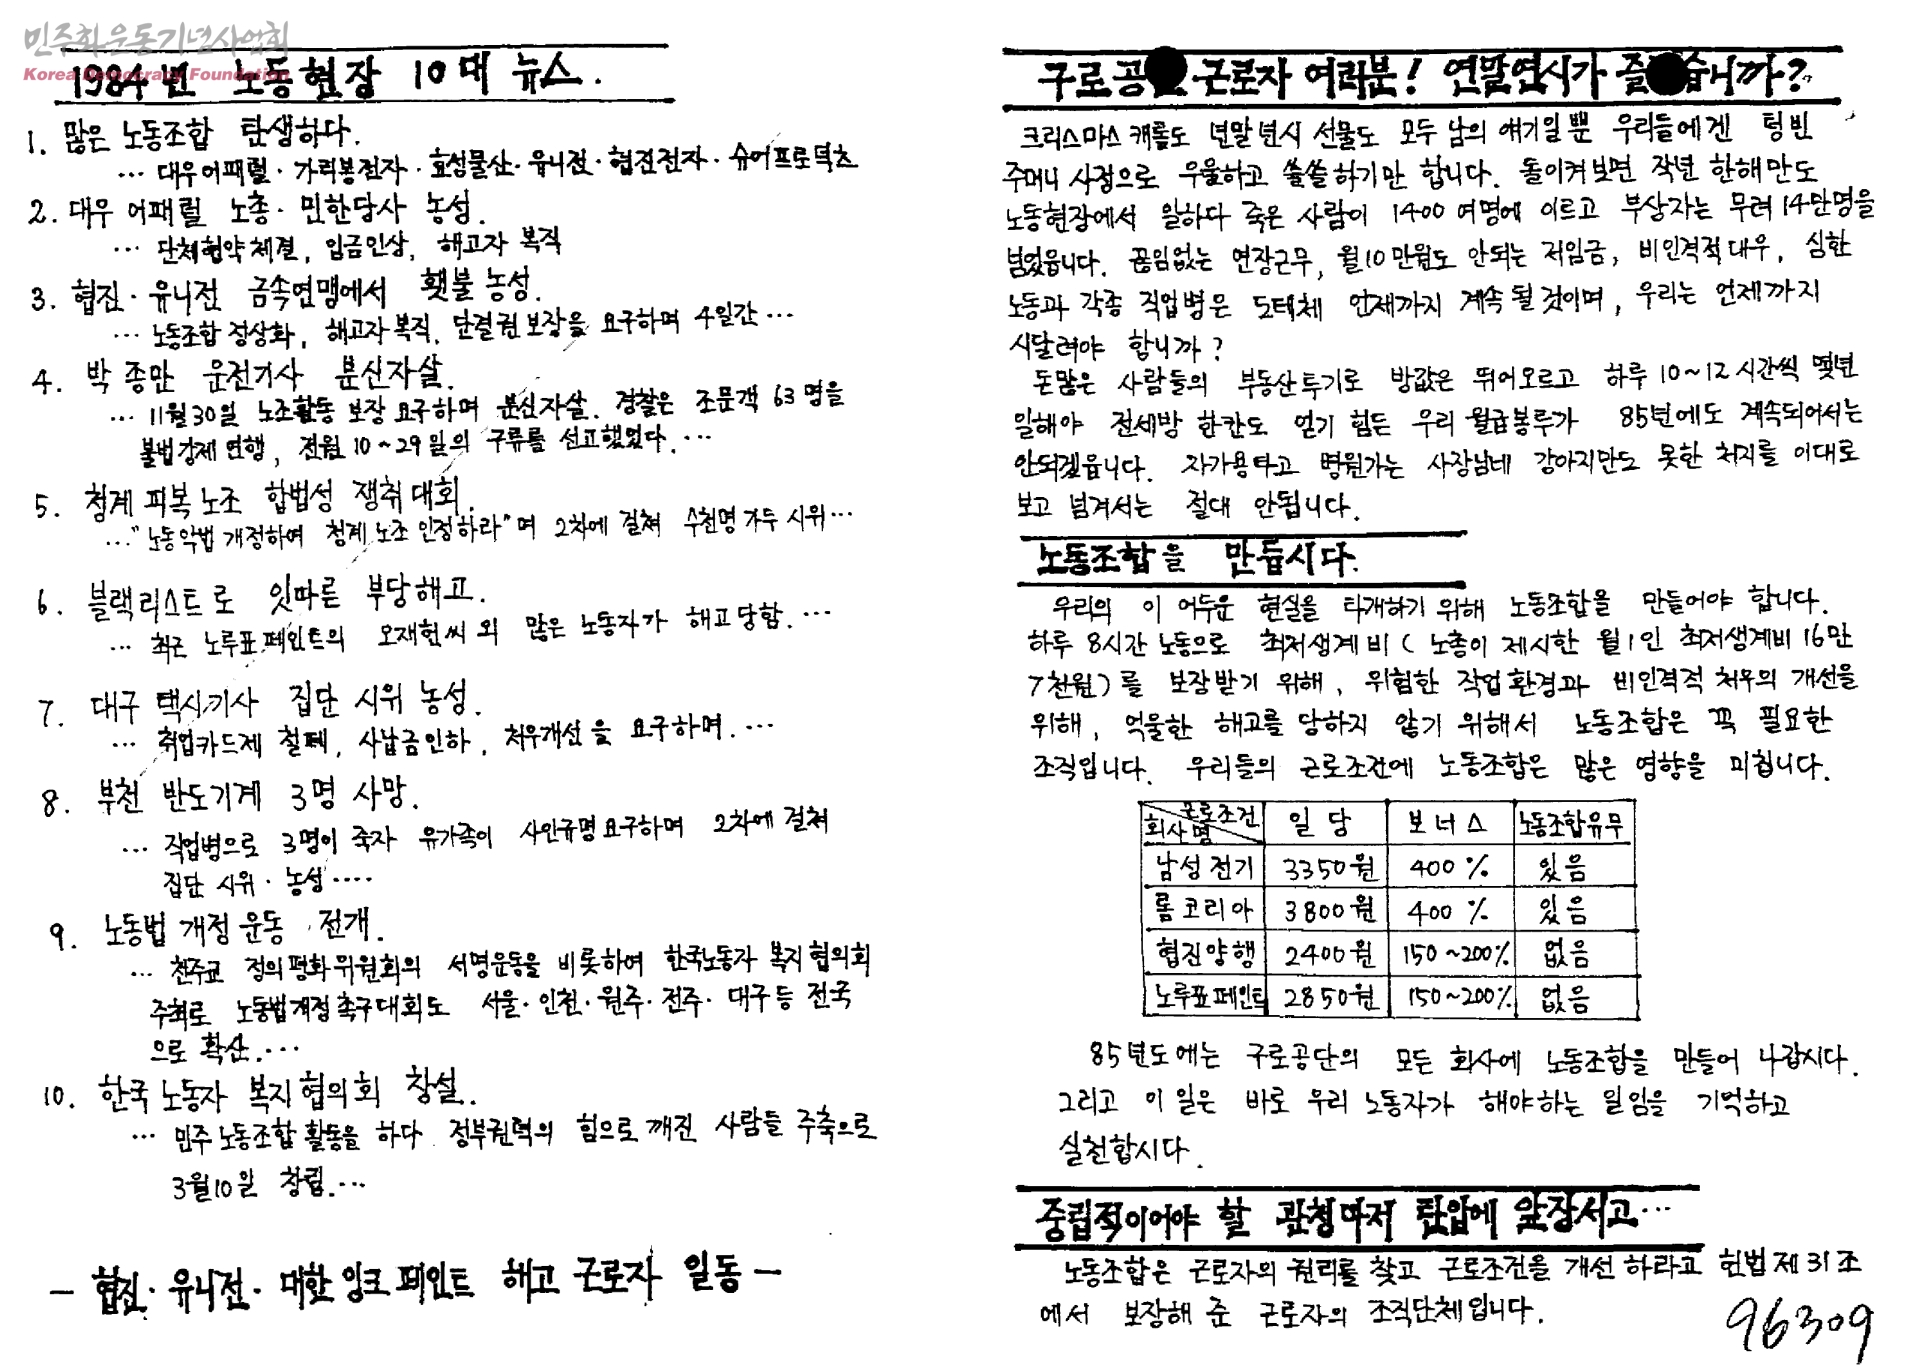 민주화운동기념사업회
Korea Democracy Foundation
1984년 노동현장 10대 뉴스.
1. 많은 노동조합 탄생하다.
… 대우어패럴·가리봉전자·효성물산·유니전·협진전자·슈어프로덕츠
2. 대우 어패럴 노총·민한당사 농성.
… 단체협약체결, 임금인상, 해고자 복직
3. 협진·유니전 금속연맹에서 횃불 농성.
… 노동조합 정상화, 해고자 복직, 단결권보장을 요구하며 4일간 …
4. 박종만 운전기사 분신자살.
… 11월30일 노조활동 보장 요구하며 분신자살. 경찰은 조문객 63명을
불법강제연행, 전원 10~29일의 구류를 선고했었다.…
5. 청계 피복노조 합법성 쟁취대회.
…"노동악법 개정하여 청계노조 인정하라"며 2차에 걸쳐 수천명 가두시위…
6. 블랙리스트로 잇따른 부당해고.
… 최근 노루표페인트의 오재헌씨 외 많은 노동자가 해고당함.…
7. 대구 택시기사 집단 시위 농성.
… 취업카드제 철폐, 사납금인하, 처우개선을 요구하며.…
8. 부천 반도기계 3명 사망.
… 직업병으로 3명이 죽자 유가족이 사인규명요구하며 2차에 걸쳐
집단 시위·농성….
9. 노동법 개정운동 전개.
… 천주교 정의평화위원회의 서명운동을 비롯하여 한국노동자 복지협의회
주최로 노동법개정촉구대회도 서울·인천·원주·전주·대구등 전국
으로 확산.…
10. 한국노동자 복지협의회 창설.
… 민주노동조합 활동을 하다 정부권력의 힘으로 깨진 사람들 주축으로
3월10일 창립.…
— 협진·유니전·대한잉크페인트 해고 근로자 일동 —
구로공 근로자 여러분! 연말연시가 즐 습니까?
크리스마스 캐롤도 년말년시 선물도 모두 남의 얘기일뿐 우리들에겐 텅빈
주머니 사정으로 우울하고 쓸쓸하기만 합니다. 돌이켜보면 작년 한해만도
노동현장에서 일하다 죽은 사람이 1400여명에 이르고 부상자는 무려 14만명을
넘었읍니다. 끊임없는 연장근무, 월10만원도 안되는 저임금, 비인격적대우, 심한
노동과 각종 직업병은 도대체 언제까지 계속될것이며, 우리는 언제까지
시달려야 합니까?
돈많은 사람들의 부동산투기로 방값은 뛰어오르고 하루 10~12시간씩 몇년
일해야 전세방 한칸도 얻기 힘든 우리 월급봉투가 85년에도 계속되어서는
안되겠읍니다. 자가용타고 병원가는 사장님네 강아지만도 못한 처지를 이대로
보고 넘겨서는 절대 안됩니다.
노동조합을 만듭시다.
우리의 이 어두운 현실을 타개하기 위해 노동조합을 만들어야 합니다.
하루 8시간노동으로 최저생계비(노총이 제시한 월1인 최저생계비 16만
7천원)를 보장받기 위해, 위험한 작업환경과 비인격적 처우의 개선을
위해, 억울한 해고를 당하지 않기 위해서 노동조합은 꼭 필요한
조직입니다. 우리들의 근로조건에 노동조합은 많은 영향을 미칩니다.
근로조건 회사명 일당 보너스 노동조합유무
남성전기 3350원 400% 있음
롬코리아 3800원 400% 있음
협진양행 2400원 150~200% 없음
노루표페인트 2850원 150~200% 없음
85년도에는 구로공단의 모든 회사에 노동조합을 만들어 나갑시다.
그리고 이 일은 바로 우리 노동자가 해야하는 일임을 기억하고
실천합시다.
중립적이어야 할 관청마저 탄압에 앞장서고…
노동조합은 근로자의 권리를 찾고 근로조건을 개선하라고 헌법제31조
에서 보장해 준 근로자의 조직단체입니다.
96309